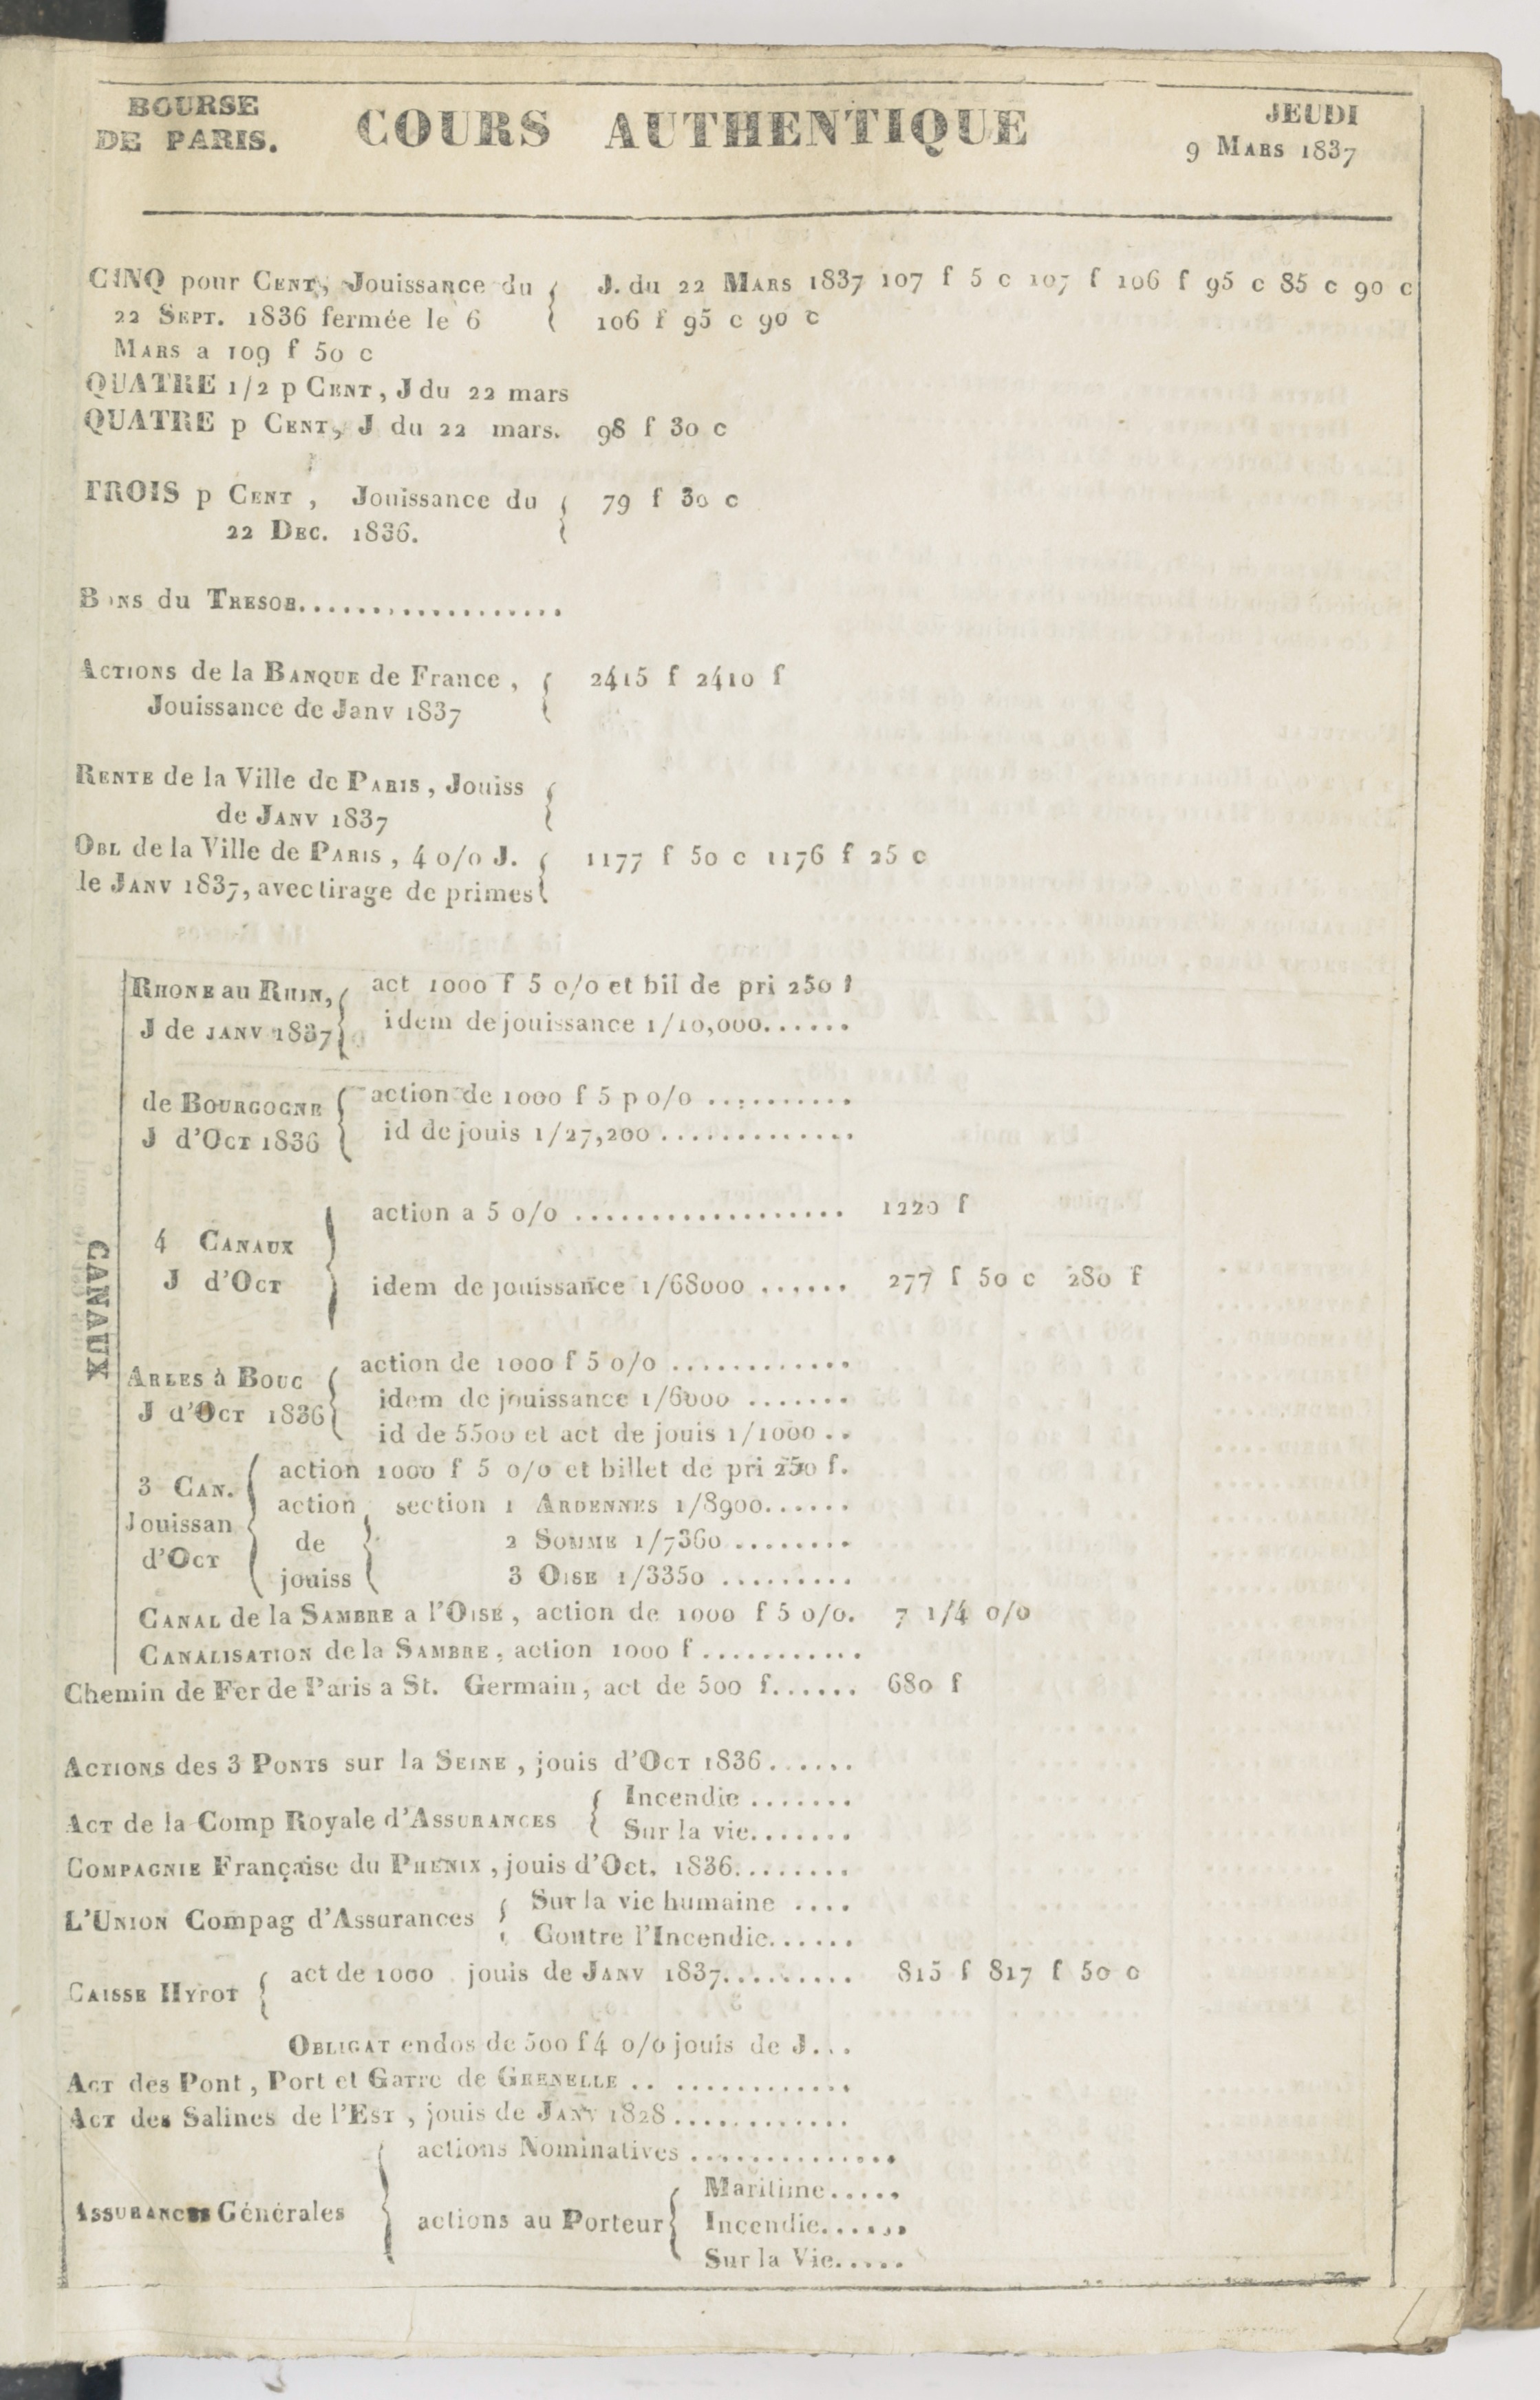 BOURSE
DE PARIS.
COURS AUTHENTIQUE
JEUDI
9 MARS 1837
CINQ pour CENT, Jouissance du { J. du 22 MARS 1837 107 f 5 c 107 f 106 f 95 c 85 c 90 c
22 SEPT. 1836 fermée le 6 106 f 95 c 90 c
MARS a 109 f 50 c
QUATRE 1/2 p CENT, J du 22 mars
QUATRE p CENT, J du 22 mars. 98 f 30 c
TROIS p CENT, Jouissance du { 79 f 30 c
22 DEC. 1836.
BONS du TRESOR..................
ACTIONS de la BANQUE de France, { 2415 f 2410 f
Jouissance de Janv 1837
RENTE de la Ville de PARIS, Jouiss {
de JANV 1837
OBL de la Ville de PARIS, 4 o/o J. { 1177 f 50 c 1176 f 25 c
le JANV 1837, avec tirage de primes
CANAUX
RHONE au RHIN, { act 1000 f 5 o/o et bil de pri 250 f
J de JANV 1837 idem de jouissance 1/10,000......
de BOURGOGNE { action de 1000 f 5 p o/o ..........
J d'OCT 1836 id de jouis 1/27,200 .............
action a 5 o/o .................. 1220 f
4 CANAUX
J d'OCT } idem de jouissance 1/68000 ...... 277 f 50 c 280 f
action de 1000 f 5 o/o ............
ARLES à BOUC { idem de jouissance 1/6000 .......
J d'OCT 1836 id de 5500 et act de jouis 1/1000 ..
action 1000 f 5 o/o et billet de pri 250 f.
3 CAN. { action section 1 ARDENNES 1/8900......
Jouissan de } 2 SOMME 1/7360 ........
d'OCT jouiss 3 OISE 1/3350 .........
CANAL de la SAMBRE a l'OISE, action de 1000 f 5 o/o. 7 1/4 o/o
CANALISATION de la SAMBRE, action 1000 f ...........
Chemin de Fer de Paris a St. Germain, act de 500 f...... 680 f
ACTIONS des 3 PONTS sur la SEINE, jouis d'OCT 1836......
ACT de la Comp Royale d'ASSURANCES { Incendie .......
Sur la vie.......
COMPAGNIE Française du PHENIX, jouis d'Oct. 1836........
L'UNION Compag d'Assurances { Sur la vie humaine ....
Contre l'Incendie......
CAISSE HYPOT { act de 1000 jouis de JANV 1837......... 815 f 817 f 50 c
OBLIGAT endos de 500 f 4 o/o jouis de J...
ACT des Pont, Port et Garre de GRENELLE .. ............
ACT des Salines de l'EST, jouis de JANV 1828 ............
actions Nominatives ..............
ASSURANCES Générales { actions au Porteur { Maritime.....
Incendie......
Sur la Vie.....